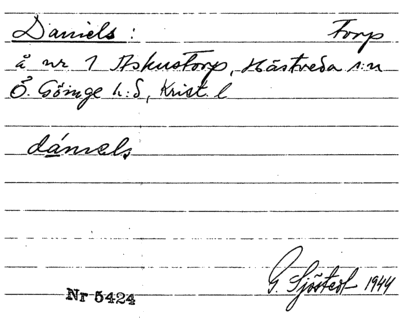 Daniels: Torp
å nr 1 Askustorp, Hästveda s:n
Ö. Göinge h:d, Krist. l
dániels
G. Sjöstedt 1944
Nr 5424